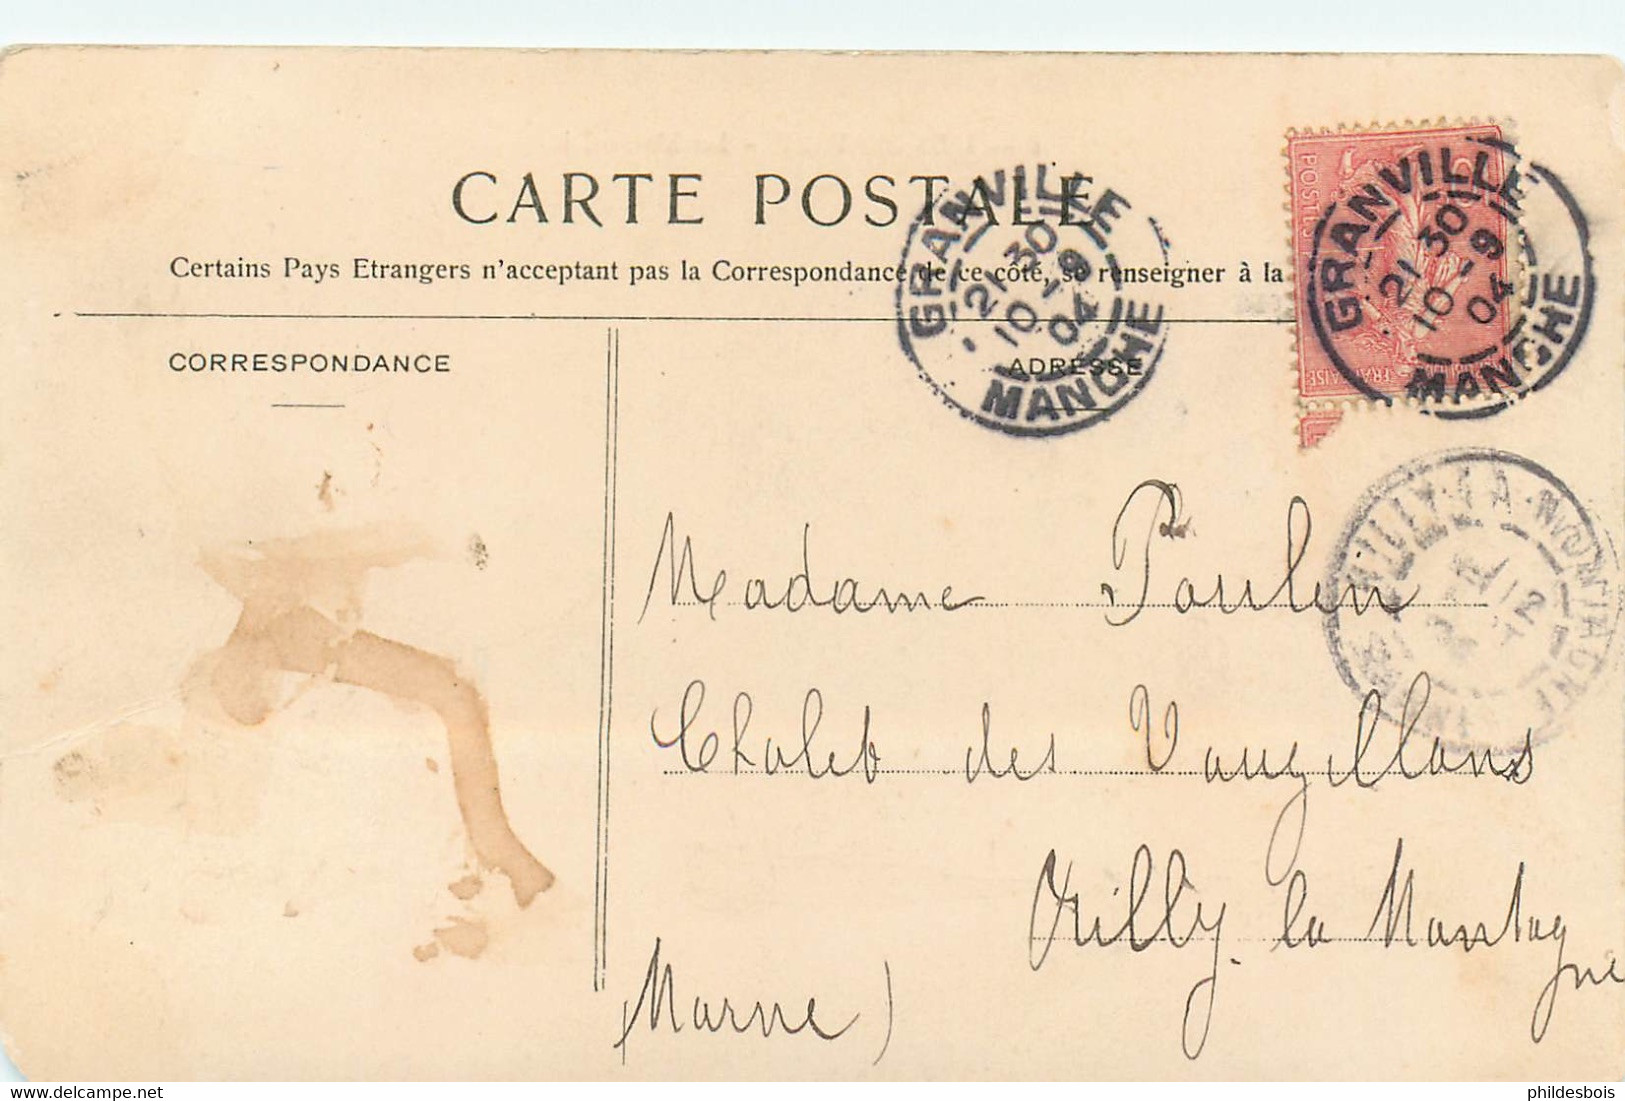 CARTE POSTALE
Certains Pays Etrangers n'acceptant pas la Correspondance de ce côté, se renseigner à la
CORRESPONDANCE
ADRESSE
GRANVILLE
21 30
10 -9
04
MANCHE
POSTES
FRANÇAISE
GRANVILLE
21 30
10 -9
04
MANCHE
RILLY-LA-MONTAGNE
Madame Paulin
Chalet des Vaugillans
Rilly. la Montagne
(Marne)
delcampe.net
phildesbois